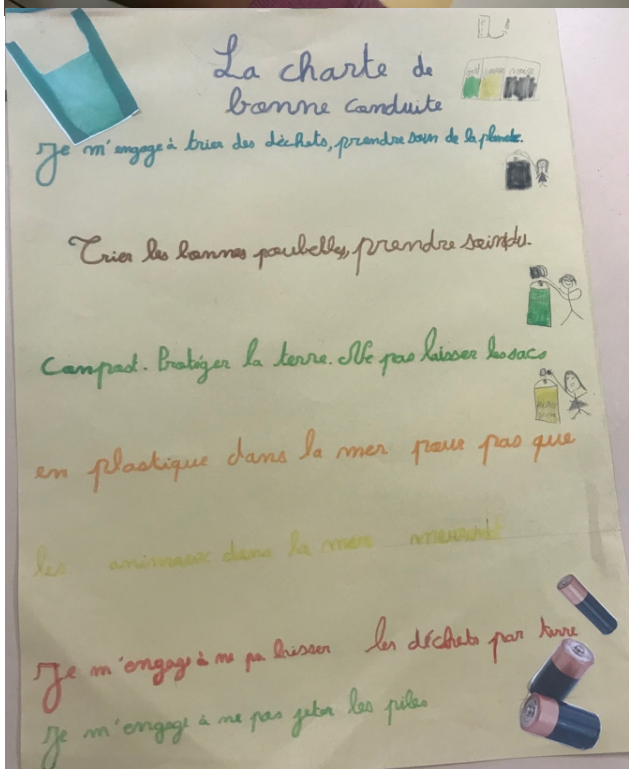 La charte de
bonne conduite
Je m'engage à trier des déchets, prendre soin de la planete.
Trier les bonnes poubelles, prendre soin du.
Compost. Protéger la terre. Ne pas laisser les sacs
en plastique dans la mer pour pas que
les animaux dans la mer meurent
Je m'engage à ne pas laisser les déchets par terre
Je m'engage à ne pas jeter les piles